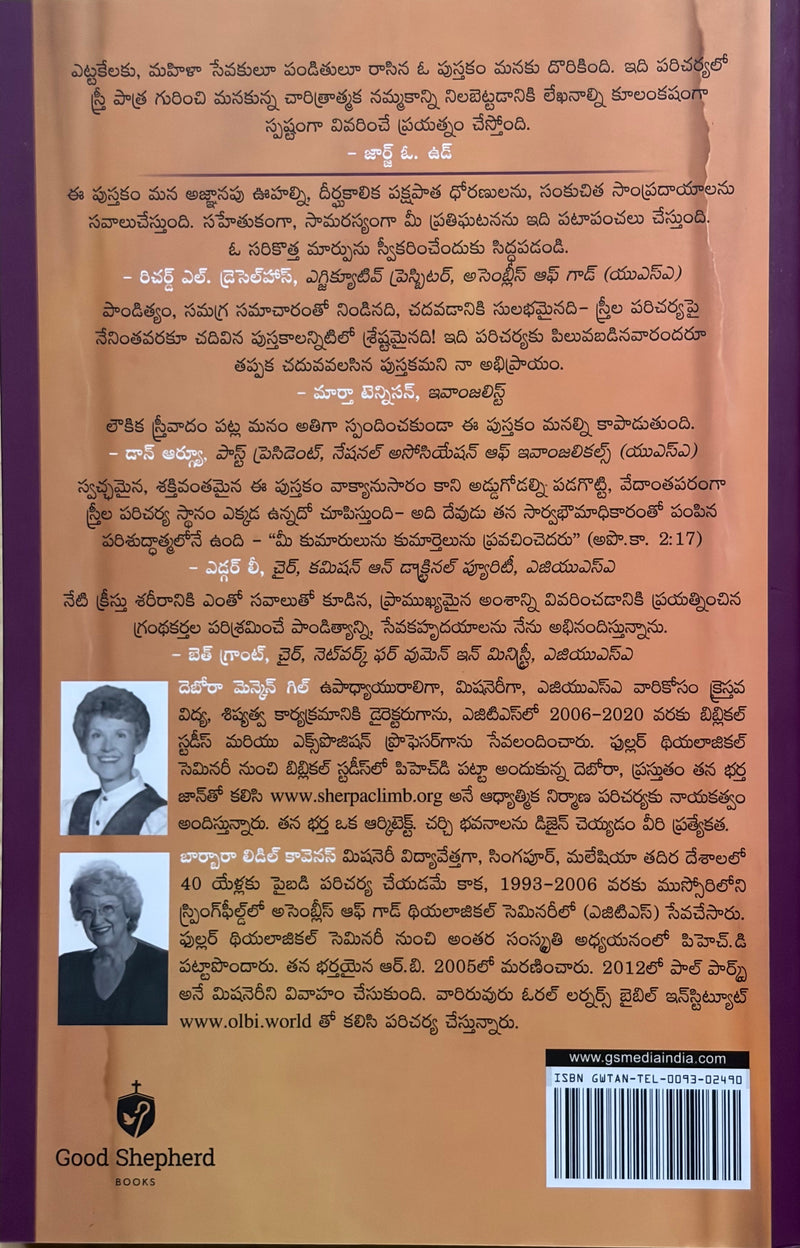 ఎట్టకేలకు, మహిళా సేవకులూ పండితులూ రాసిన ఓ పుస్తకం మనకు దొరికింది. ఇది పరిచర్యలో
స్త్రీ పాత్ర గురించి మనకున్న చారిత్రాత్మక నమ్మకాన్ని నిలబెట్టడానికి లేఖనాల్ని కూలంకషంగా
స్పష్టంగా వివరించే ప్రయత్నం చేస్తోంది.
- జార్జ్ ఓ. ఉడ్
ఈ పుస్తకం మన అజ్ఞానపు ఊహల్ని, దీర్ఘకాలిక పక్షపాత ధోరణులను, సంకుచిత సాంప్రదాయాలను
సవాలుచేస్తుంది. సహేతుకంగా, సామరస్యంగా మీ ప్రతిఘటనను ఇది పటాపంచలు చేస్తుంది.
ఓ సరికొత్త మార్పును స్వీకరించేందుకు సిద్ధపడండి.
- రిచర్డ్ ఎల్. డ్రెసెల్‌హాస్, ఎగ్జిక్యూటివ్ ప్రెస్బిటర్, అసెంబ్లీస్ ఆఫ్ గాడ్ (యుఎస్ఎ)
పాండిత్యం, సమగ్ర సమాచారంతో నిండినది, చదవడానికి సులభమైనది- స్త్రీల పరిచర్యపై
నేనింతవరకూ చదివిన పుస్తకాలన్నిటిలో శ్రేష్టమైనది! ఇది పరిచర్యకు పిలువబడినవారందరూ
తప్పక చదువవలసిన పుస్తకమని నా అభిప్రాయం.
- మార్తా టెన్నిసన్, ఇవాంజలిస్ట్
లౌకిక స్త్రీవాదం పట్ల మనం అతిగా స్పందించకుండా ఈ పుస్తకం మనల్ని కాపాడుతుంది.
- డాన్ ఆర్గ్యూ, పాస్ట్ ప్రెసిడెంట్, నేషనల్ అసోసియేషన్ ఆఫ్ ఇవాంజలికల్స్ (యుఎస్ఎ)
స్వచ్ఛమైన, శక్తివంతమైన ఈ పుస్తకం వాక్యానుసారం కాని అడ్డుగోడల్ని పడగొట్టి, వేదాంతపరంగా
స్త్రీల పరిచర్య స్థానం ఎక్కడ ఉన్నదో చూపిస్తుంది- అది దేవుడు తన సార్వభౌమాధికారంతో పంపిన
పరిశుద్ధాత్మలోనే ఉంది - “మీ కుమారులును కుమార్తెలును ప్రవచించెదరు” (అపొ.కా. 2:17)
- ఎడ్గర్ లీ, చైర్, కమిషన్ ఆన్ డాక్ట్రినల్ ప్యూరిటీ, ఎజియుఎస్ఎ
నేటి క్రీస్తు శరీరానికి ఎంతో సవాలుతో కూడిన, ప్రాముఖ్యమైన అంశాన్ని వివరించడానికి ప్రయత్నించిన
గ్రంథకర్తల పరిశ్రమించే పాండిత్యాన్ని, సేవకహృదయాలను నేను అభినందిస్తున్నాను.
- బెత్ గ్రాంట్, చైర్, నెట్‌వర్క్ ఫర్ వుమెన్ ఇన్ మినిస్ట్రీ, ఎజియుఎస్ఎ
దెబోరా మెన్కెన్ గిల్ ఉపాధ్యాయురాలిగా, మిషనెరీగా, ఎజియుఎస్ఎ వారికోసం క్రైస్తవ
విద్య, శిష్యత్వ కార్యక్రమానికి డైరెక్టరుగాను, ఎజిటిఎస్‌లో 2006-2020 వరకు బిబ్లికల్
స్టడీస్ మరియు ఎక్స్‌పొజిషన్ ప్రొఫెసర్‌గాను సేవలందించారు. ఫుల్లర్ థియలాజికల్
సెమినరీ నుంచి బిబ్లికల్ స్టడీస్‌లో పిహెచ్‌డి పట్టా అందుకున్న దెబోరా, ప్రస్తుతం తన భర్త
జాన్‌తో కలిసి www.sherpaclimb.org అనే ఆధ్యాత్మిక నిర్మాణ పరిచర్యకు నాయకత్వం
అందిస్తున్నారు. తన భర్త ఒక ఆర్కిటెక్ట్. చర్చి భవనాలను డిజైన్ చెయ్యడం వీరి ప్రత్యేకత.
బార్బారా లిడిల్ కావెనస్ మిషనెరీ విద్యావేత్తగా, సింగపూర్, మలేషియా తదితర దేశాలలో
40 యేళ్లకు పైబడి పరిచర్య చేయడమే కాక, 1993-2006 వరకు ముస్సోరిలోని
స్ప్రింగ్‌ఫీల్డ్‌లో అసెంబ్లీస్ ఆఫ్ గాడ్ థియలాజికల్ సెమినరీలో (ఎజిటిఎస్) సేవచేసారు.
ఫుల్లర్ థియలాజికల్ సెమినరీ నుంచి అంతర సంస్కృతి అధ్యయనంలో పిహెచ్.డి
పట్టాపొందారు. తన భర్తయైన ఆర్.బి. 2005లో మరణించారు. 2012లో పాల్ పార్క్స్
అనే మిషనెరీని వివాహం చేసుకుంది. వారిరువురు ఓరల్ లర్నర్స్ బైబిల్ ఇన్‌స్టిట్యూట్
www.olbi.world తో కలిసి పరిచర్య చేస్తున్నారు.
www.gsmediaindia.com
ISBN GWTAN-TEL-0093-02490
Good Shepherd
BOOKS